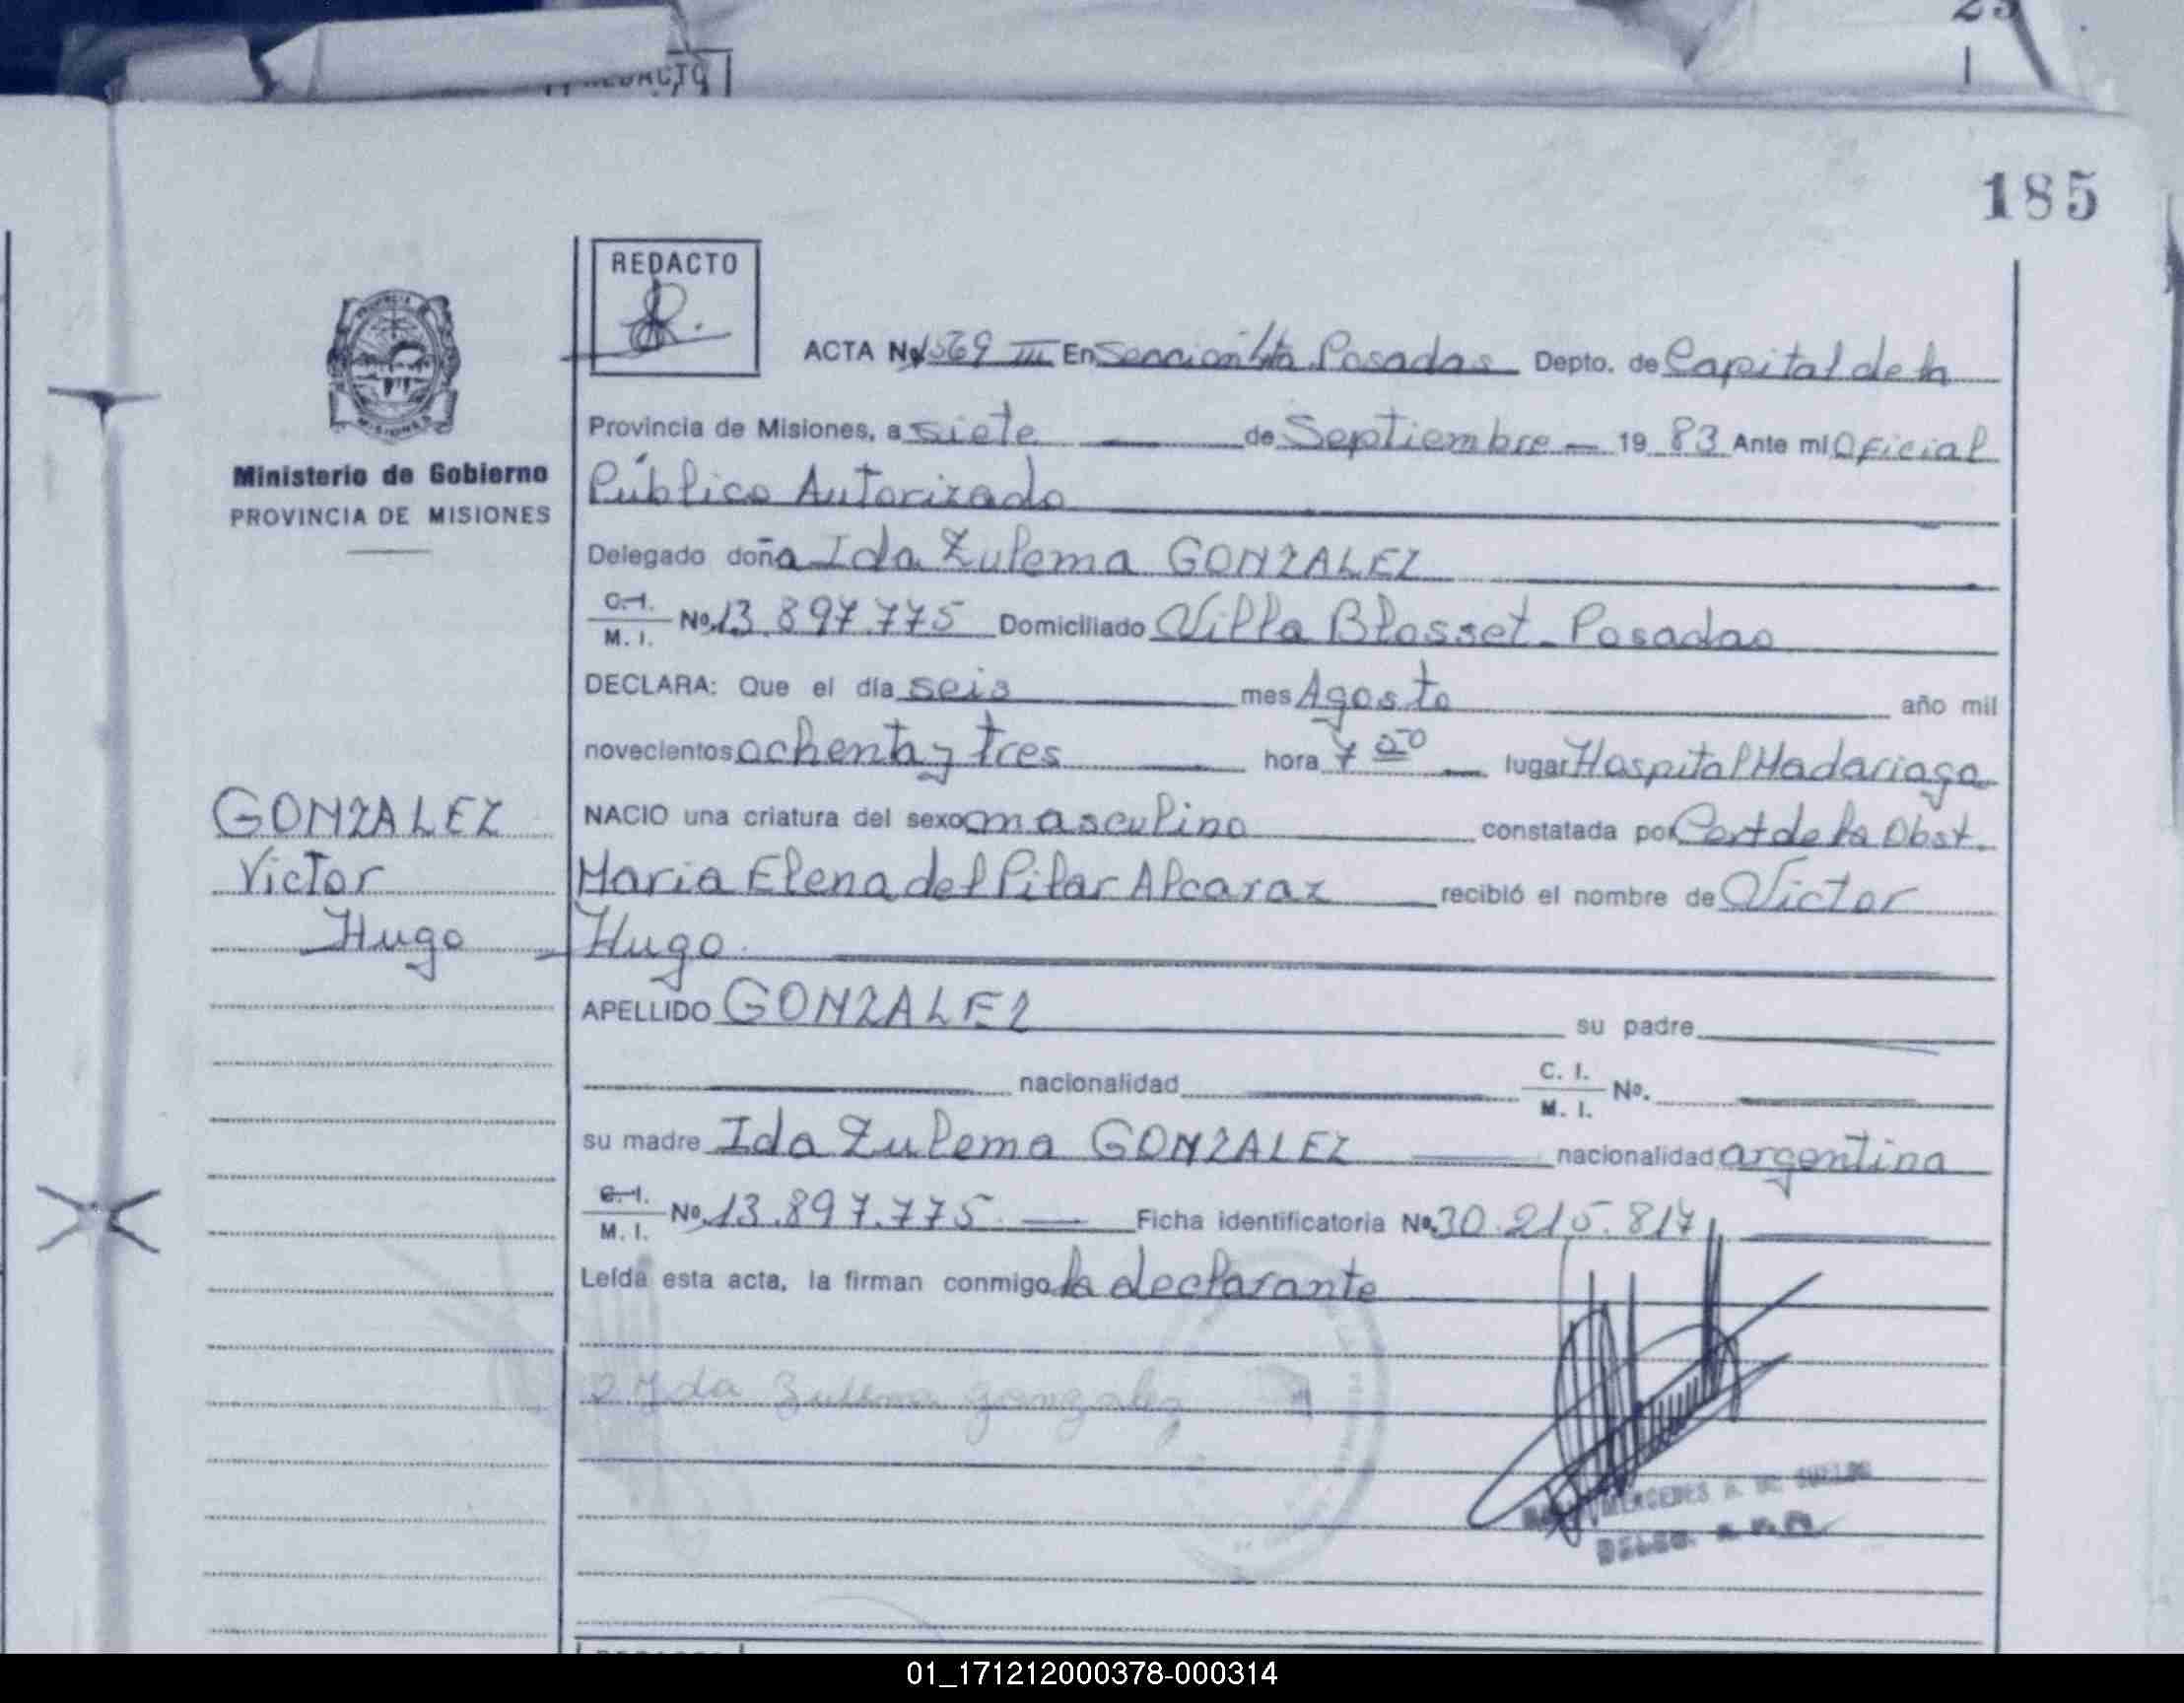 185
REDACTO
ACTA Nº 1569 III En Sección 6ta Posadas Depto. de Capital de la
Provincia de Misiones, a siete de Septiembre 19 83 Ante mi Oficial
Público Autorizado
Ministerio de Gobierno
PROVINCIA DE MISIONES
Delegado doña Ida Zulema GONZALEZ
C.I.
M. I. Nº 13.897.775 Domiciliado Villa Blosset - Posadas
DECLARA: Que el día seis mes Agosto año mil
novecientos ochenta y tres hora 7 50 lugar Hospital Madariaga
NACIO una criatura del sexo masculino constatada por Cert de la Obst.
GONZALEZ
Victor
Hugo
Maria Elena del Pilar Alcaraz recibló el nombre de Victor
Hugo.
APELLIDO GONZALEZ su padre
nacionalidad C. I.
M. I. Nº.
su madre Ida Zulema GONZALEZ nacionalidad argentina
C.I.
M. I. Nº 13.897.775 Ficha identificatoria Nº 30.215.817
Leída esta acta, la firman conmigo la declarante
Ida Zulema gonzalez
MERCEDES
01_171212000378-000314